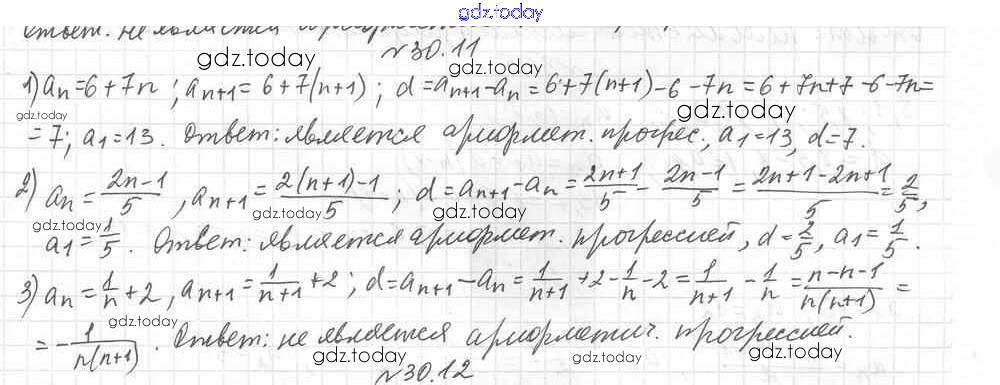 gdz.today
Ответ: не является
№30.11
gdz.today
1) aₙ=6+7n ; aₙ₊₁=6+7(n+1) ; d=aₙ₊₁-aₙ=6+7(n+1)-6-7n=6+7n+7-6-7n=
gdz.today gdz.today
=7; a₁=13. Ответ: является арифмет. прогрес., a₁=13, d=7.
2) aₙ=(2n-1)/5 , aₙ₊₁=(2(n+1)-1)/5 ; d=aₙ₊₁-aₙ=(2n+1)/5-(2n-1)/5=(2n+1-2n+1)/5=2/5,
gdz.today gdz.today gdz.today
a₁=1/5. Ответ: является арифмет. прогрессией, d=2/5, a₁=1/5.
gdz.today gdz.today
3) aₙ=1/n+2, aₙ₊₁=1/(n+1)+2; d=aₙ₊₁-aₙ=1/(n+1)+2-1/n-2=1/(n+1)-1/n=(n-n-1)/(n(n+1))=
gdz.today
=-1/(n(n+1)). Ответ: не является арифметич. прогрессией.
gdz.today gdz.today
№30.12